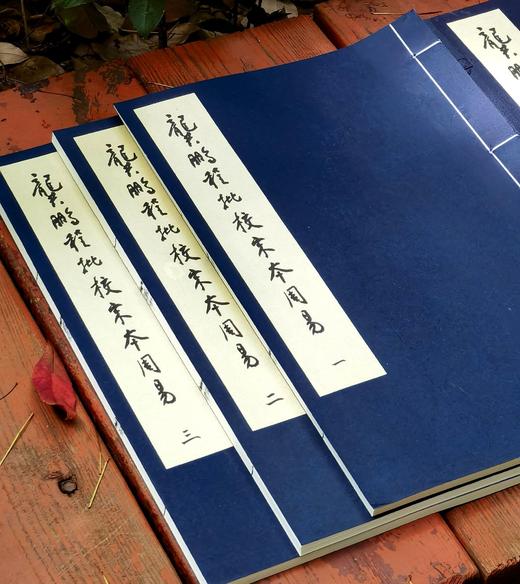 龔鵬程批校宋本周易 一
龔鵬程批校宋本周易 二
龔鵬程批校宋本周易 三
龔鵬